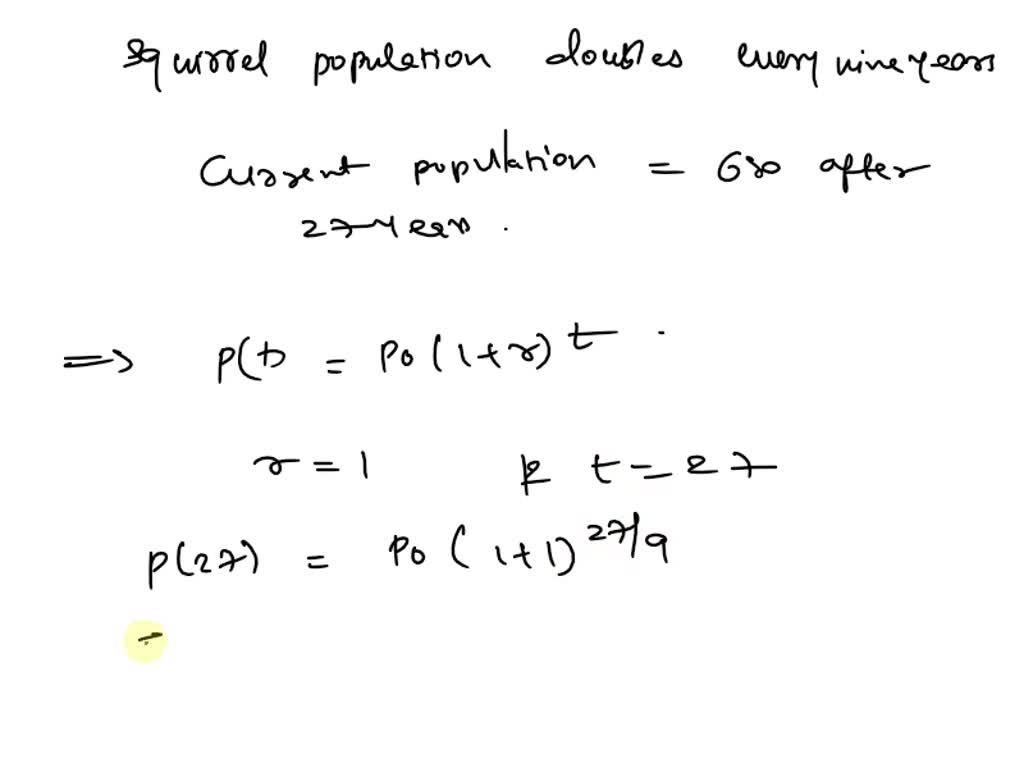 Squirrel population doubles every nine years
Current population = 680 after
27 years.
⇒ P(t = P0 (1+r) t .
r = 1 & t = 27
P(27) = P0 (1+1) 27/9